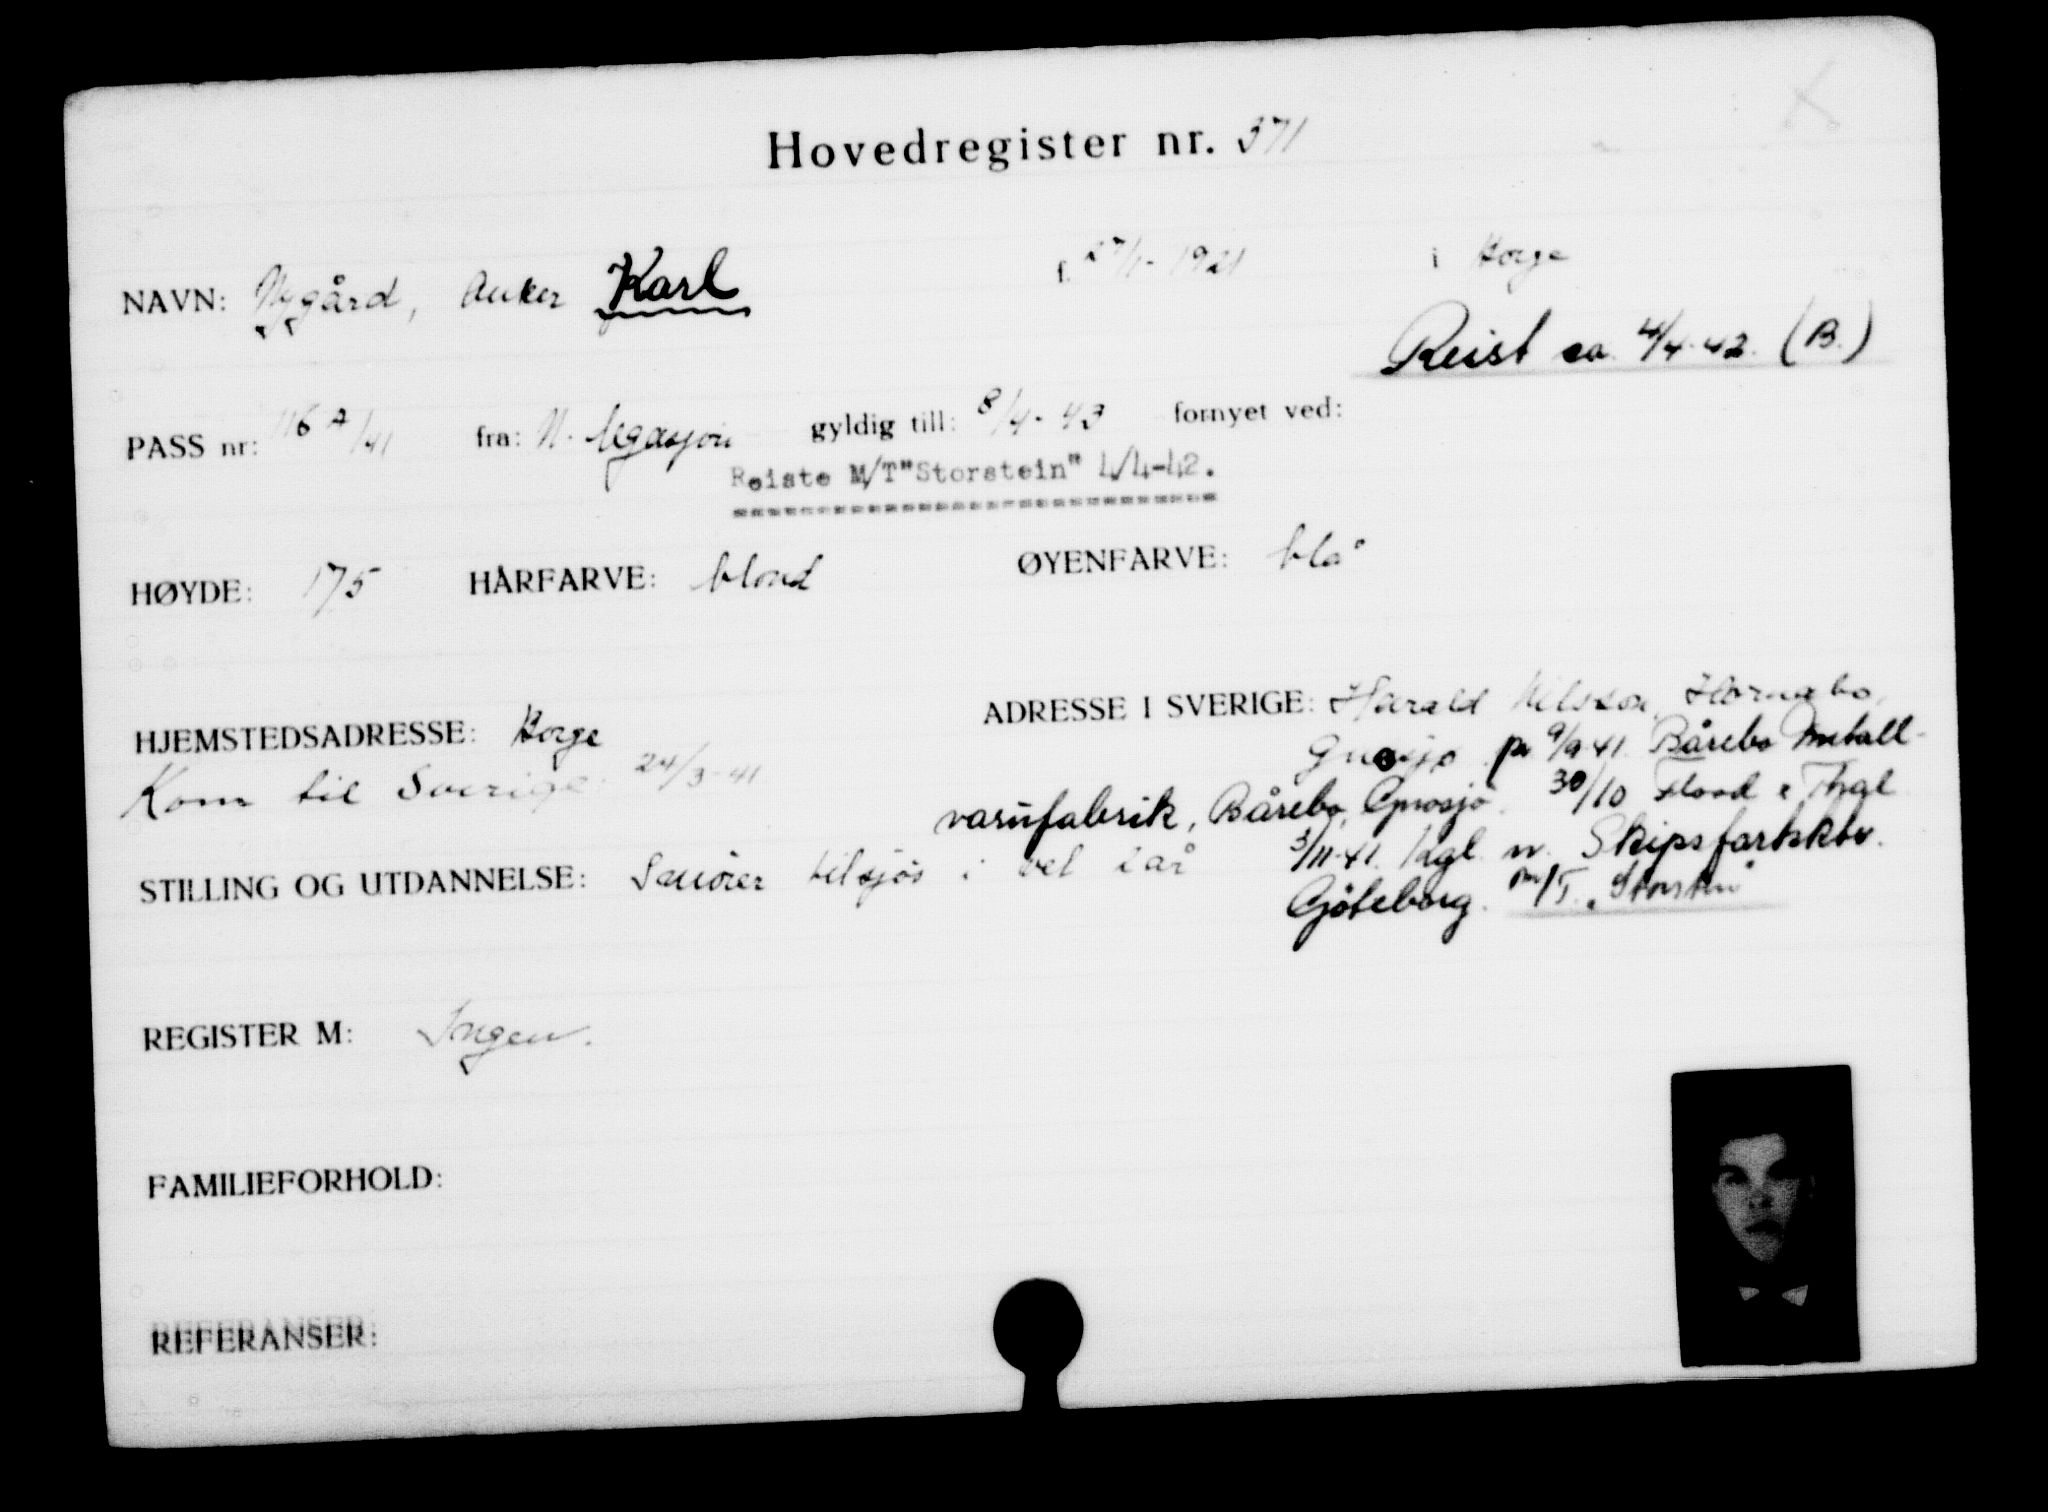 Hovedregister nr. 371
NAVN: Nygård, Anker Karl f. 27/1- 1921 i Borge
Reist ca. 4/4-42. (B.)
PASS nr: 116 A/41 fra: N. legasjon gyldig till: 8/4- 43 fornyet ved:
Reiste M/T"Storstein" 4/4-42.
HØYDE: 175 HÅRFARVE: blond ØYENFARVE: blå
HJEMSTEDSADRESSE: Borge ADRESSE I SVERIGE: Harald Nilsson,
Kom til Sverige: 24/3-41
Gnosjø pr 9/9-41. Bårebo Metall-
varufabrik, Bårebo, Gnosjø. 30/10
3/11-41. Kgl. n. Skipsfartsktr.
Gøteborg. M/T. "Storstein"
STILLING OG UTDANNELSE: Smører tilsjøs i vel 2 år
REGISTER M: Ingen.
FAMILIEFORHOLD:
REFERANSER: